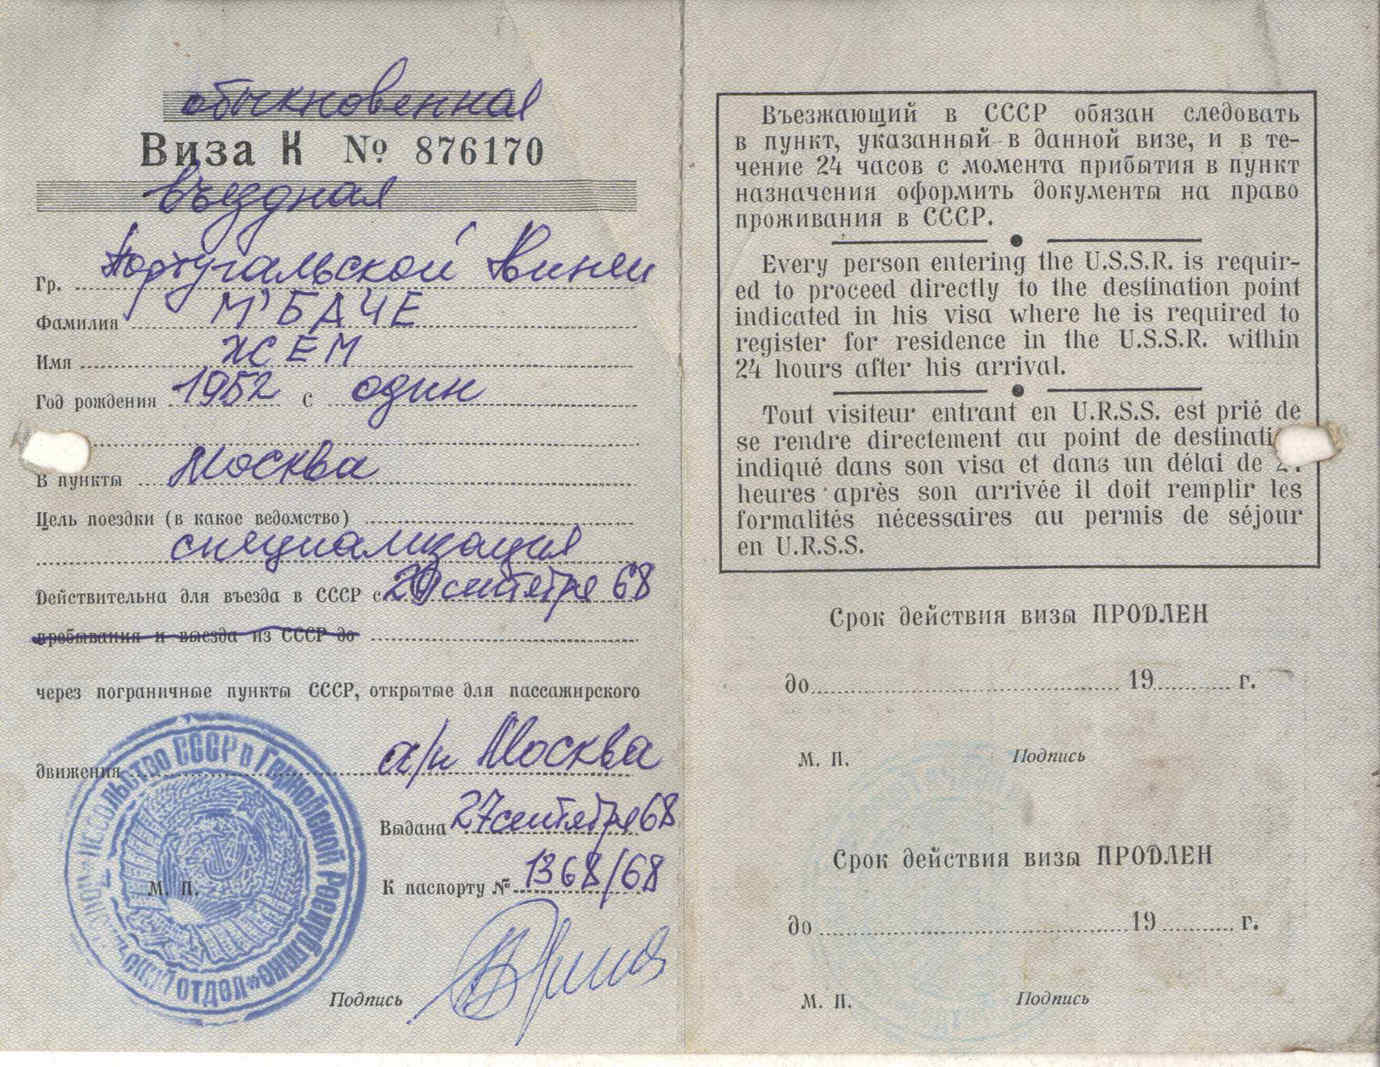 обыкновенная
Виза К № 876170
въездная
Гр. Португальской Гвинеи
Фамилия М'БАЧЕ
Имя ЖСЕМ
Год рождения 1952 с один
В пункты Москва
Цель поездки (в какое ведомство)
специализация
Действительна для въезда в СССР с 29 сентября 68
пребывания и выезда из СССР до
через пограничные пункты СССР, открытые для пассажирского
движения а/п Москва
Выдана 27 сентября 68
М. П.
К паспорту № 1368/68
Подпись
ПОСОЛЬСТВО СССР В Гвинейской Республике
отдел
Въезжающий в СССР обязан следовать
в пункт, указанный в данной визе, и в те-
чение 24 часов с момента прибытия в пункт
назначения оформить документы на право
проживания в СССР.
Every person entering the U.S.S.R. is requir-
ed to proceed directly to the destination point
indicated in his visa where he is required to
register for residence in the U.S.S.R. within
24 hours after his arrival.
Tout visiteur entrant en U.R.S.S. est prié de
se rendre directement au point de destination
indiqué dans son visa et dans un délai de 24
heures après son arrivée il doit remplir les
formalités nécessaires au permis de séjour
en U.R.S.S.
Срок действия визы ПРОДЛЕН
до 19 г.
М. П. Подпись
Срок действия визы ПРОДЛЕН
до 19 г.
М. П. Подпись